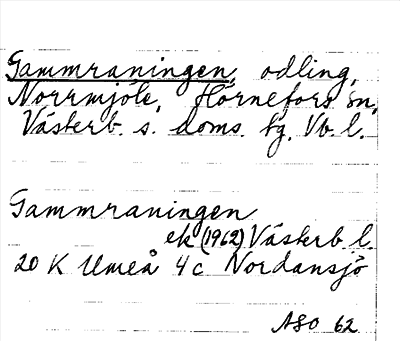 Gammraningen, odling,
Norrmjöle, Hörnefors sn,
Västerb. s. doms. tg. Vb. l.
Gammraningen
ek (1962) Västerb. l.
20 K Umeå 4 c Nordansjö
ASO 62